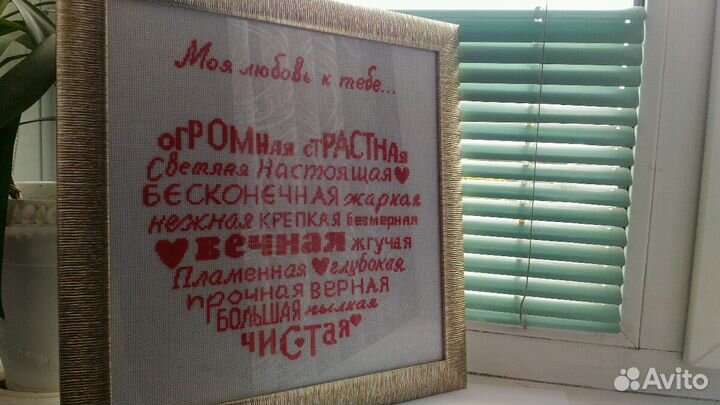 Моя любовь к тебе...
огРОМНая стРАСТНая
Светлая Настоящая
БЕСКОНЕЧНАЯ жаркая
нежная КРЕПКАЯ безмерная
вечная жгучая
Пламенная глубокая
прочная ВЕРНАЯ
БОЛЬШАЯ пылкая
ЧИСТая
Avito